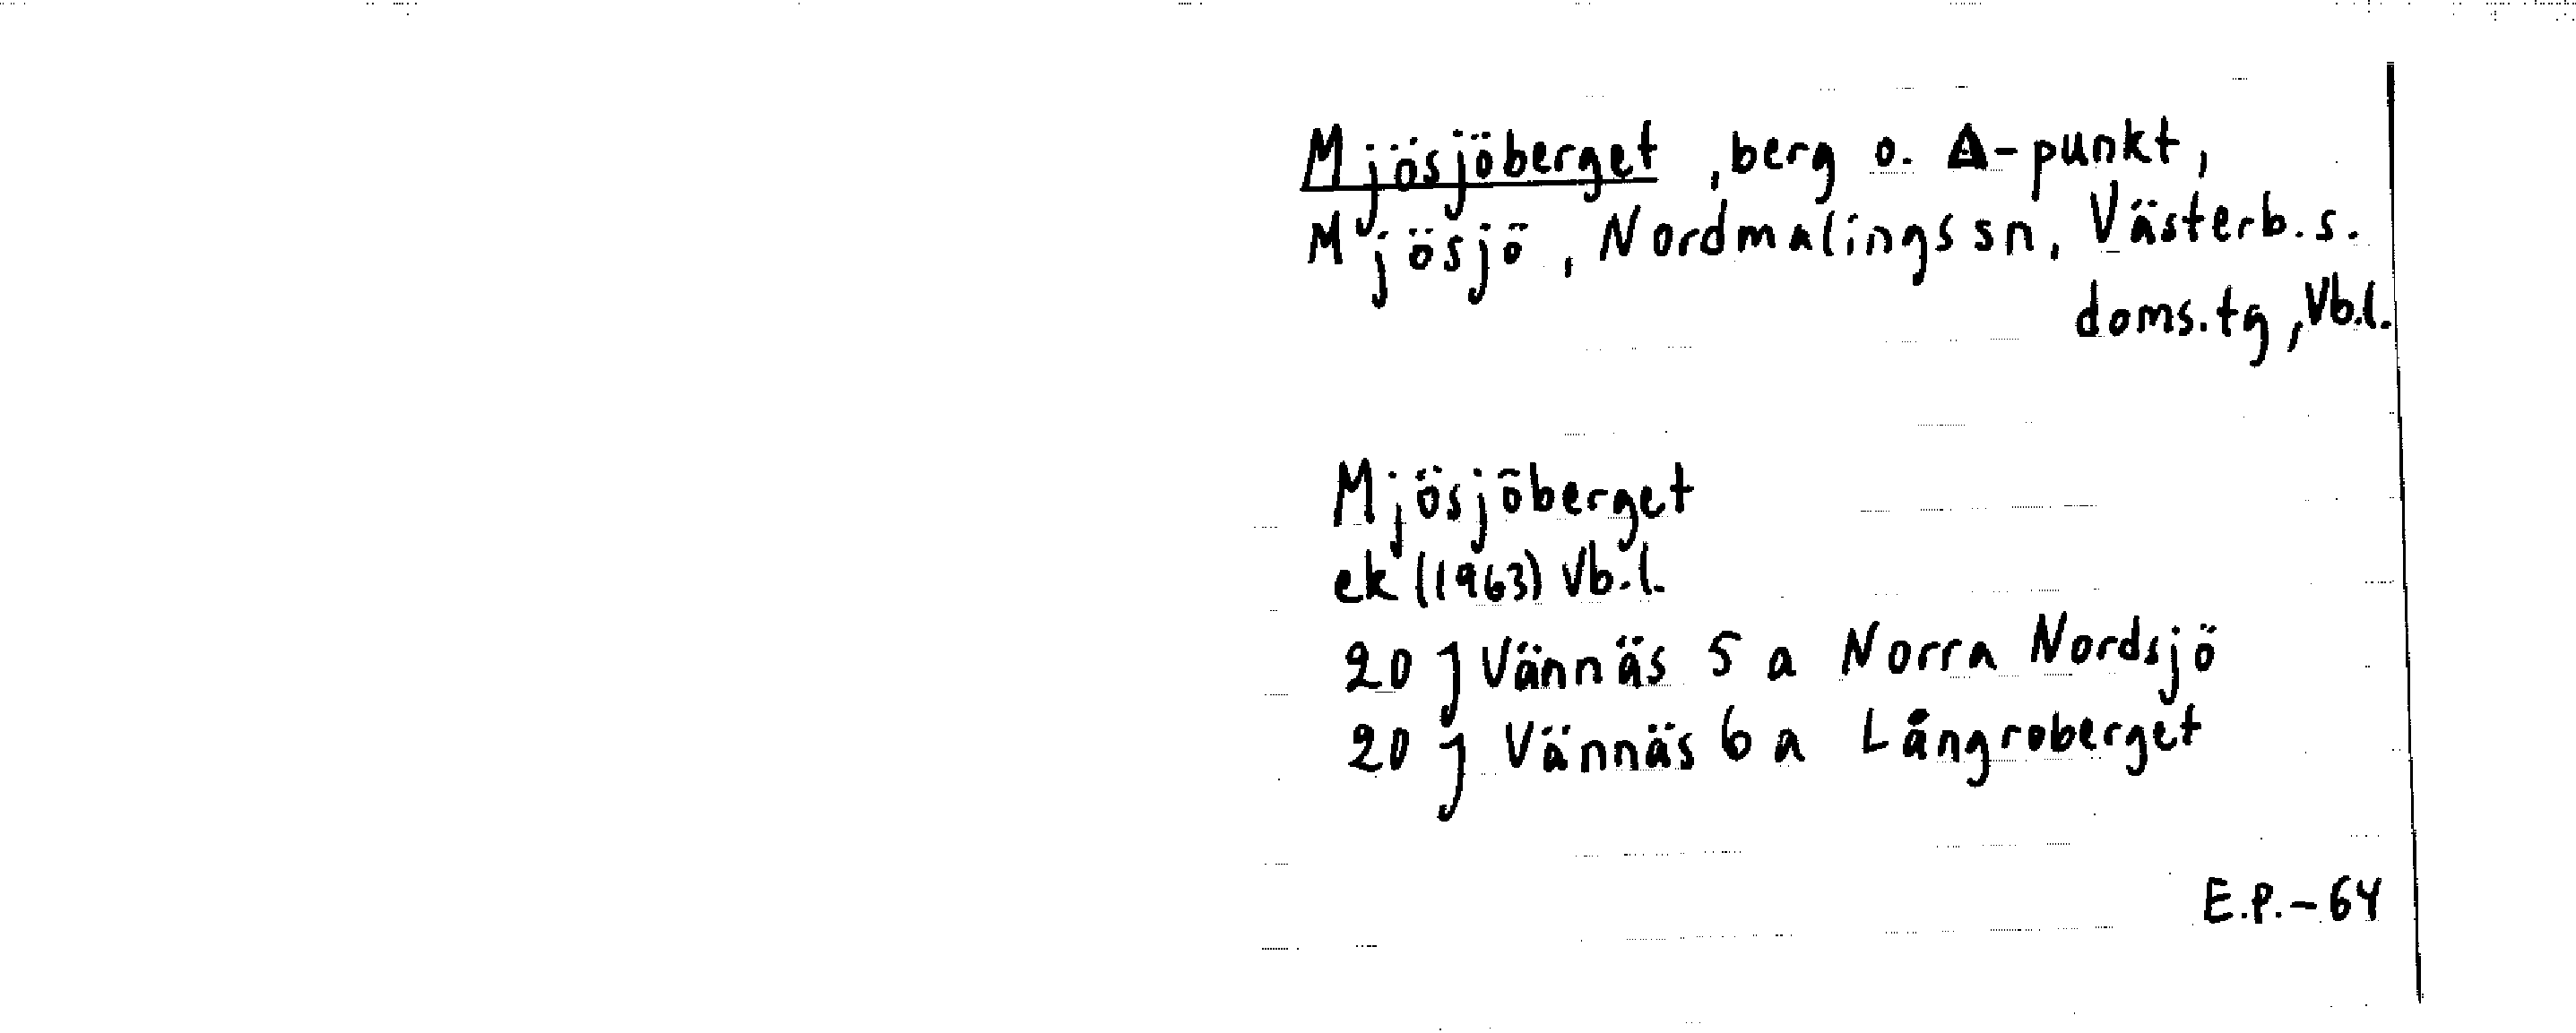 Mjösjöberget, berg o. Δ-punkt,
Mjösjö, Nordmalings sn, Västerb. s.
doms.tg, Vb.l.
Mjösjöberget
ek (1963) Vb.l.
20 J Vännäs 5 a Norra Nordsjö
20 J Vännäs 6 a Långroberget
E.P. - 64